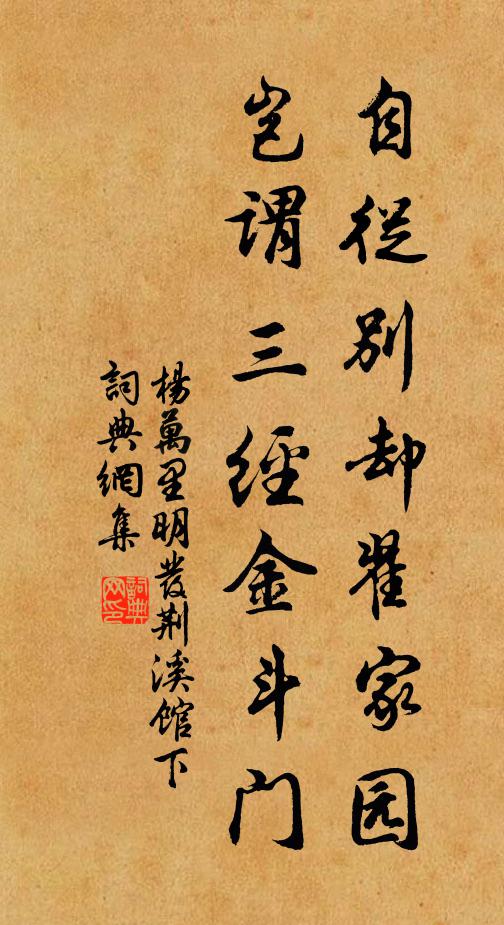 自從别却翟家园
岂謂三經金斗门
楊萬里明發荆溪館下
詞典網集
詞典网印